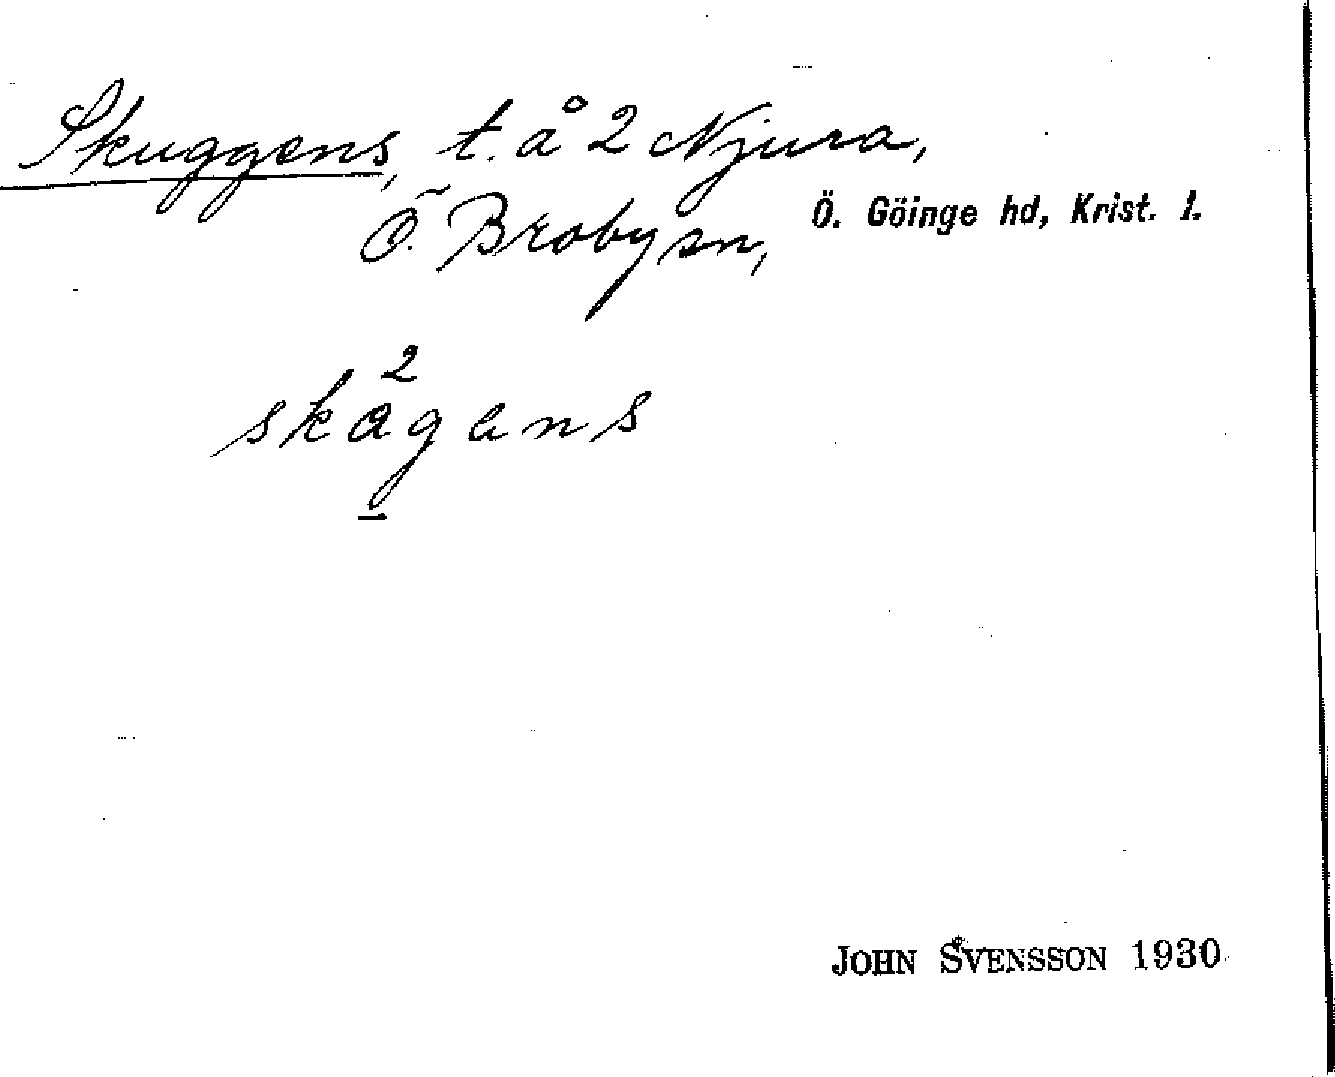 Skuggens, t. å 2 Njura,
Ö. Broby sn, Ö. Göinge hd, Krist. l.
2
skågens
JOHN SVENSSON 1930